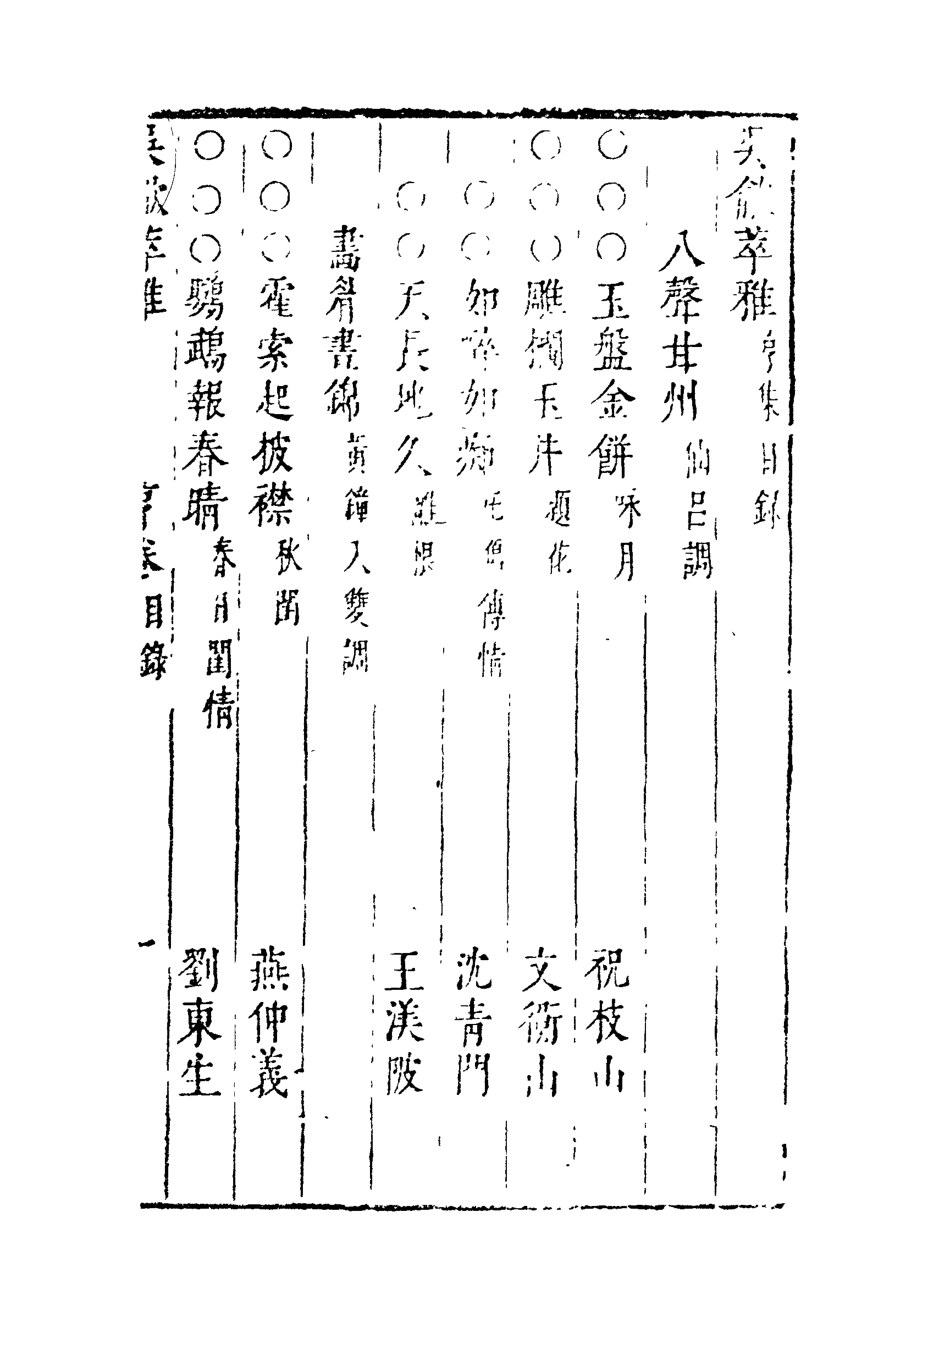 吳歈萃雅亨集目錄
八聲甘州仙呂調
○○○玉盤金餅咏月 祝枝山
○○○雕欄玉砌題花 文衡山
○○如醉如痴代傳情 沈青門
○○天長地久離恨 王渼陂
晝錦黃鐘入雙調
○○○霍索起披襟秋閨 燕仲義
○○○鸚鵡報春晴春日閨情 劉東生
吳歈萃雅 亨卷目錄 一